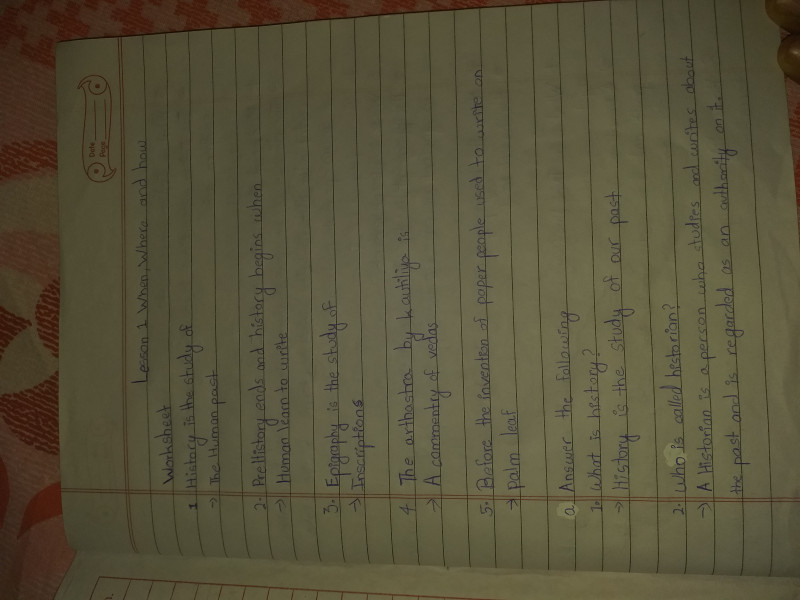 Date
Page
Lesson 1 When, Where and how
Worksheet
1 History is the study of
→ The Human past
2. PreHistory ends and history begins when
→ Human learn to write
3. Epigraphy is the study of
→ Inscriptions
4 The arthastra by Kautiliya is
→ A commentry of vedas
5. Before the invention of paper people used to write on
→ palm leaf
a Answer the following
1. What is history?
→ History is the study of our past
2. Who is called historian?
→ A Historian is a person who studies and writes about
the past and is regarded as an authority on it.